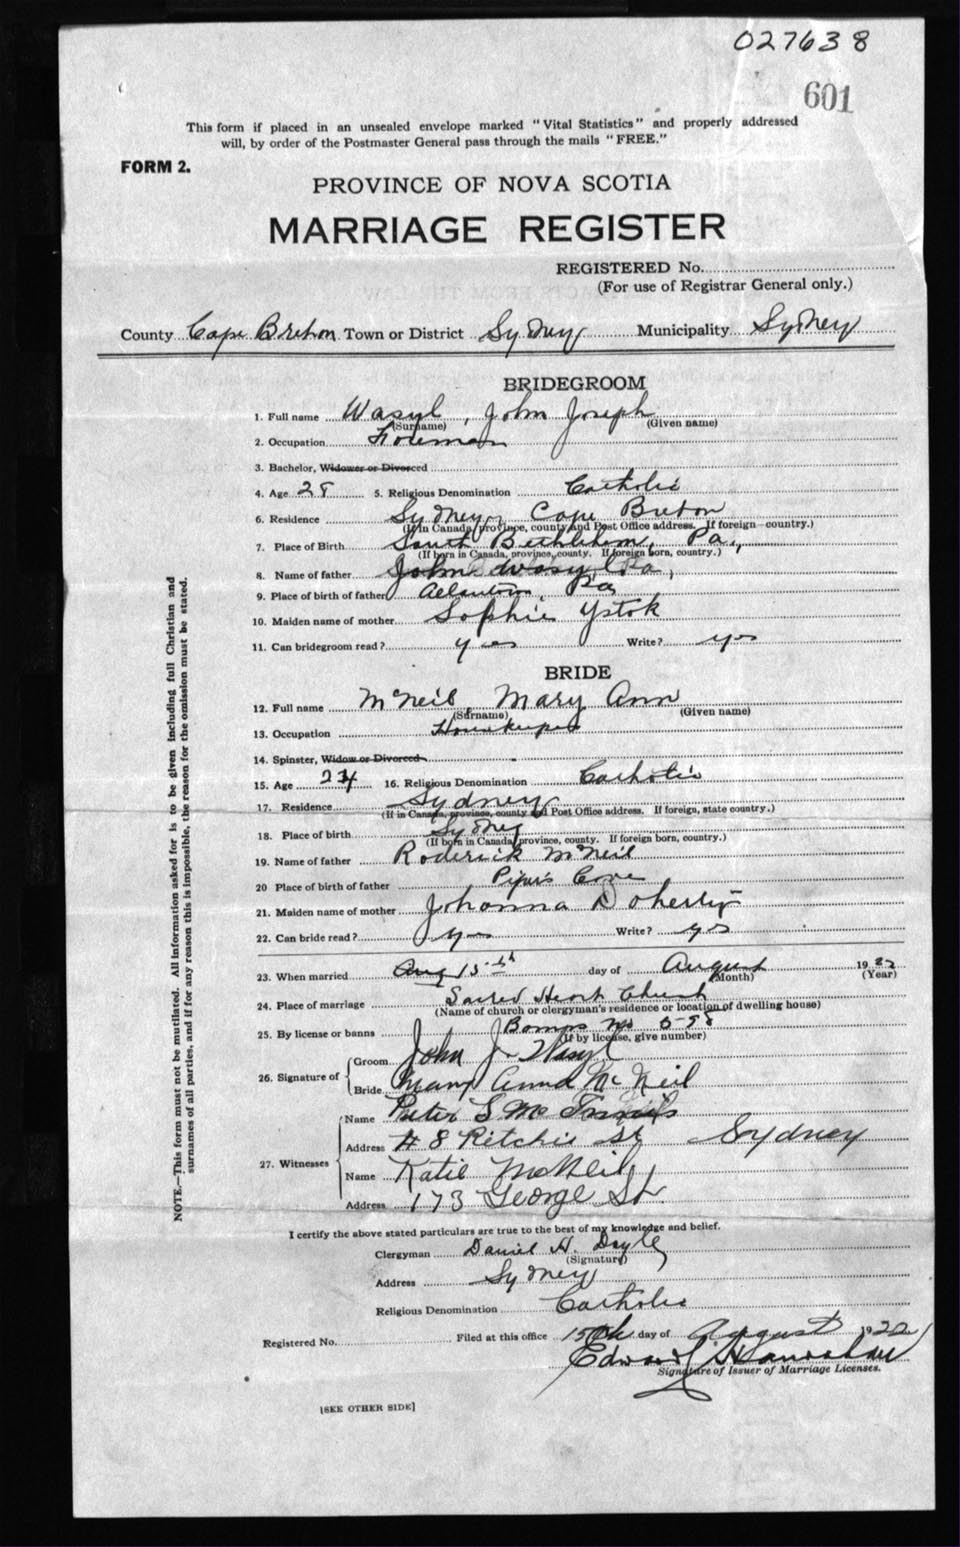 027638
601
This form if placed in an unsealed envelope marked "Vital Statistics" and properly addressed
will, by order of the Postmaster General pass through the mails "FREE."
FORM 2.
PROVINCE OF NOVA SCOTIA
MARRIAGE REGISTER
REGISTERED No.
(For use of Registrar General only.)
County Cape Breton Town or District Sydney Municipality Sydney
BRIDEGROOM
1. Full name Wasyl, John Joseph
(Surname) (Given name)
2. Occupation Foreman
3. Bachelor, Widower or Divorced
4. Age 28 5. Religious Denomination Catholic
6. Residence Sydney, Cape Breton
(If in Canada, province, county and Post Office address. If foreign—country.)
7. Place of Birth South Bethlehem, Pa.,
(If born in Canada, province, county. If foreign born, country.)
8. Name of father John Wasyl Pa,
9. Place of birth of father Pa
10. Maiden name of mother Sophie Ystok
11. Can bridegroom read? yes Write? yes
BRIDE
12. Full name McNeil Mary Ann
(Surname) (Given name)
13. Occupation Housekeeper
14. Spinster, Widow or Divorced
15. Age 24 16. Religious Denomination Catholic
17. Residence Sydney
(If in Canada, province, county and Post Office address. If foreign, state country.)
18. Place of birth Sydney
(If born in Canada, province, county. If foreign born, country.)
19. Name of father Roderick McNeil
20 Place of birth of father Pipers Cove
21. Maiden name of mother Johanna Doherty
22. Can bride read? yes Write? yes
23. When married Aug 15th day of August 1922
(Month) (Year)
24. Place of marriage Sacred Heart Church
(Name of church or clergyman's residence or location of dwelling house)
25. By license or banns No
(If by license, give number)
26. Signature of
Groom John J. Wasyl
Bride Mary Anna McNeil
27. Witnesses
Name Peter S Mc
Address # 8 Ritchie St Sydney
Name Katie McNeil
Address 173 George St.
I certify the above stated particulars are true to the best of my knowledge and belief.
Clergyman Daniel H. Doyle
(Signature)
Address Sydney
Religious Denomination Catholic
Registered No. Filed at this office 15th day of August 1922
Edward Hanrahan
Signature of Issuer of Marriage Licenses.
[SEE OTHER SIDE]
NOTE.—This form must not be mutilated. All information asked for is to be given including full Christian and
surnames of all parties, and if for any reason this is impossible, the reason for the omission must be stated.